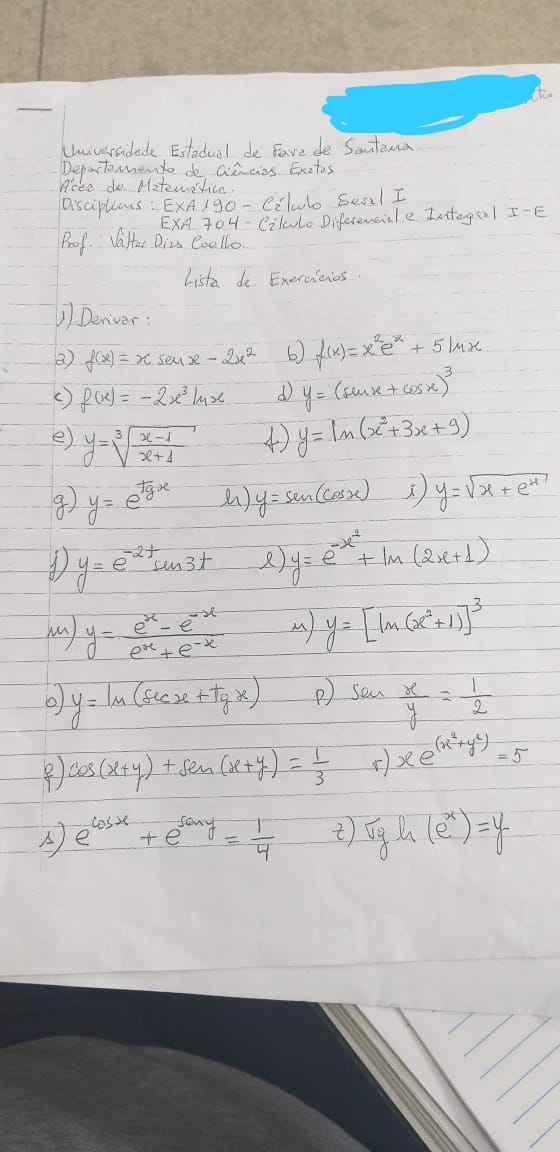 Universidade Estadual de Feira de Santana
Departamento de Ciências Exatas
Área de Matemática.
Disciplina: EXA 190 - Cálculo Geral I
EXA 704 - Cálculo Diferencial e Integral I-E
Prof.: Válter Dias Coelho.
Lista de Exercícios.
1) Derivar:
a) f(x) = x sen x - 2x² b) f(x) = x²eˣ + 5 ln x
c) f(x) = -2x³ ln x d) y = (sen x + cos x)³
e) y = ∛((x-1)/(x+1)) f) y = ln(x²+3x+9)
g) y = e^(tg x) h) y = sen(cos x) i) y = √(x + eˣ)
j) y = e^(-2t) sen 3t l) y = e^(-x²) + ln(2x+1)
m) y = (eˣ - e⁻ˣ)/(eˣ + e⁻ˣ) n) y = [ln(x²+1)]³
o) y = ln(sec x + tg x) p) sen x/y = 1/2
q) cos(x+y) + sen(x+y) = 1/3 r) x e^(x²+y²) = 5
s) e^(cos x) + e^(sen y) = 1/4 t) Tg h (eˣ) = y